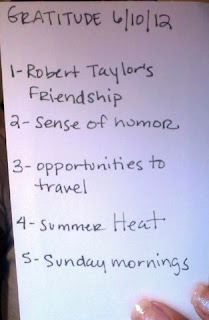 GRATITUDE 6/10/12
1-Robert Taylor's
Friendship
2-Sense of humor
3-opportunities to
travel
4-Summer Heat
5-Sunday mornings